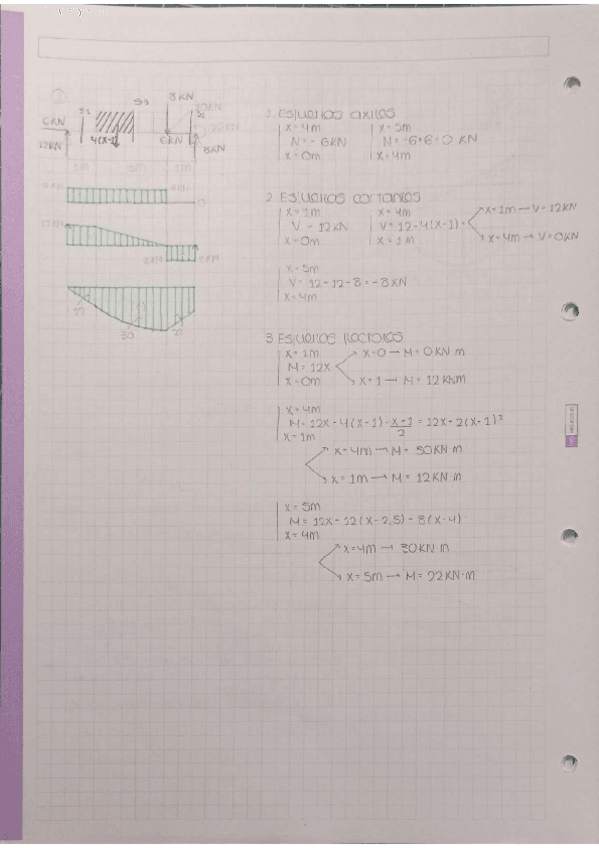 1
6KN
12KN
S1
S3
8KN
S2
4(X-1)
6KN
8KN
1m
3m
1m
6KN
6KN
0
12KN
8KN
8KN
12
30
22
1. Esfuerzos axiles
X=4m
N=-6KN
X=0m
X=5m
N=-6+6=0 KN
X=4m
2 Esfuerzos cortantes
X=1m
V=12KN
X=0m
X=4m
V=12-4(X-1)=
X=1m
X=1m → V=12KN
X=4m → V=0KN
X=5m
V=12-12-8=-8KN
X=4m
3 Esfuerzos flectores
X=1m
M=12X
X=0m
X=0 → M=0KN m
X=1 → M=12KNm
X=4m
M=12X-4(X-1)·X-1/2=12X-2(X-1)²
X=1m
X=4m → M=30KN m
X=1m → M=12KN·m
X=5m
M=12X-12(X-2,5)-8(X-4)
X=4m
X=4m → 30KN·m
X=5m → M=22KN·m